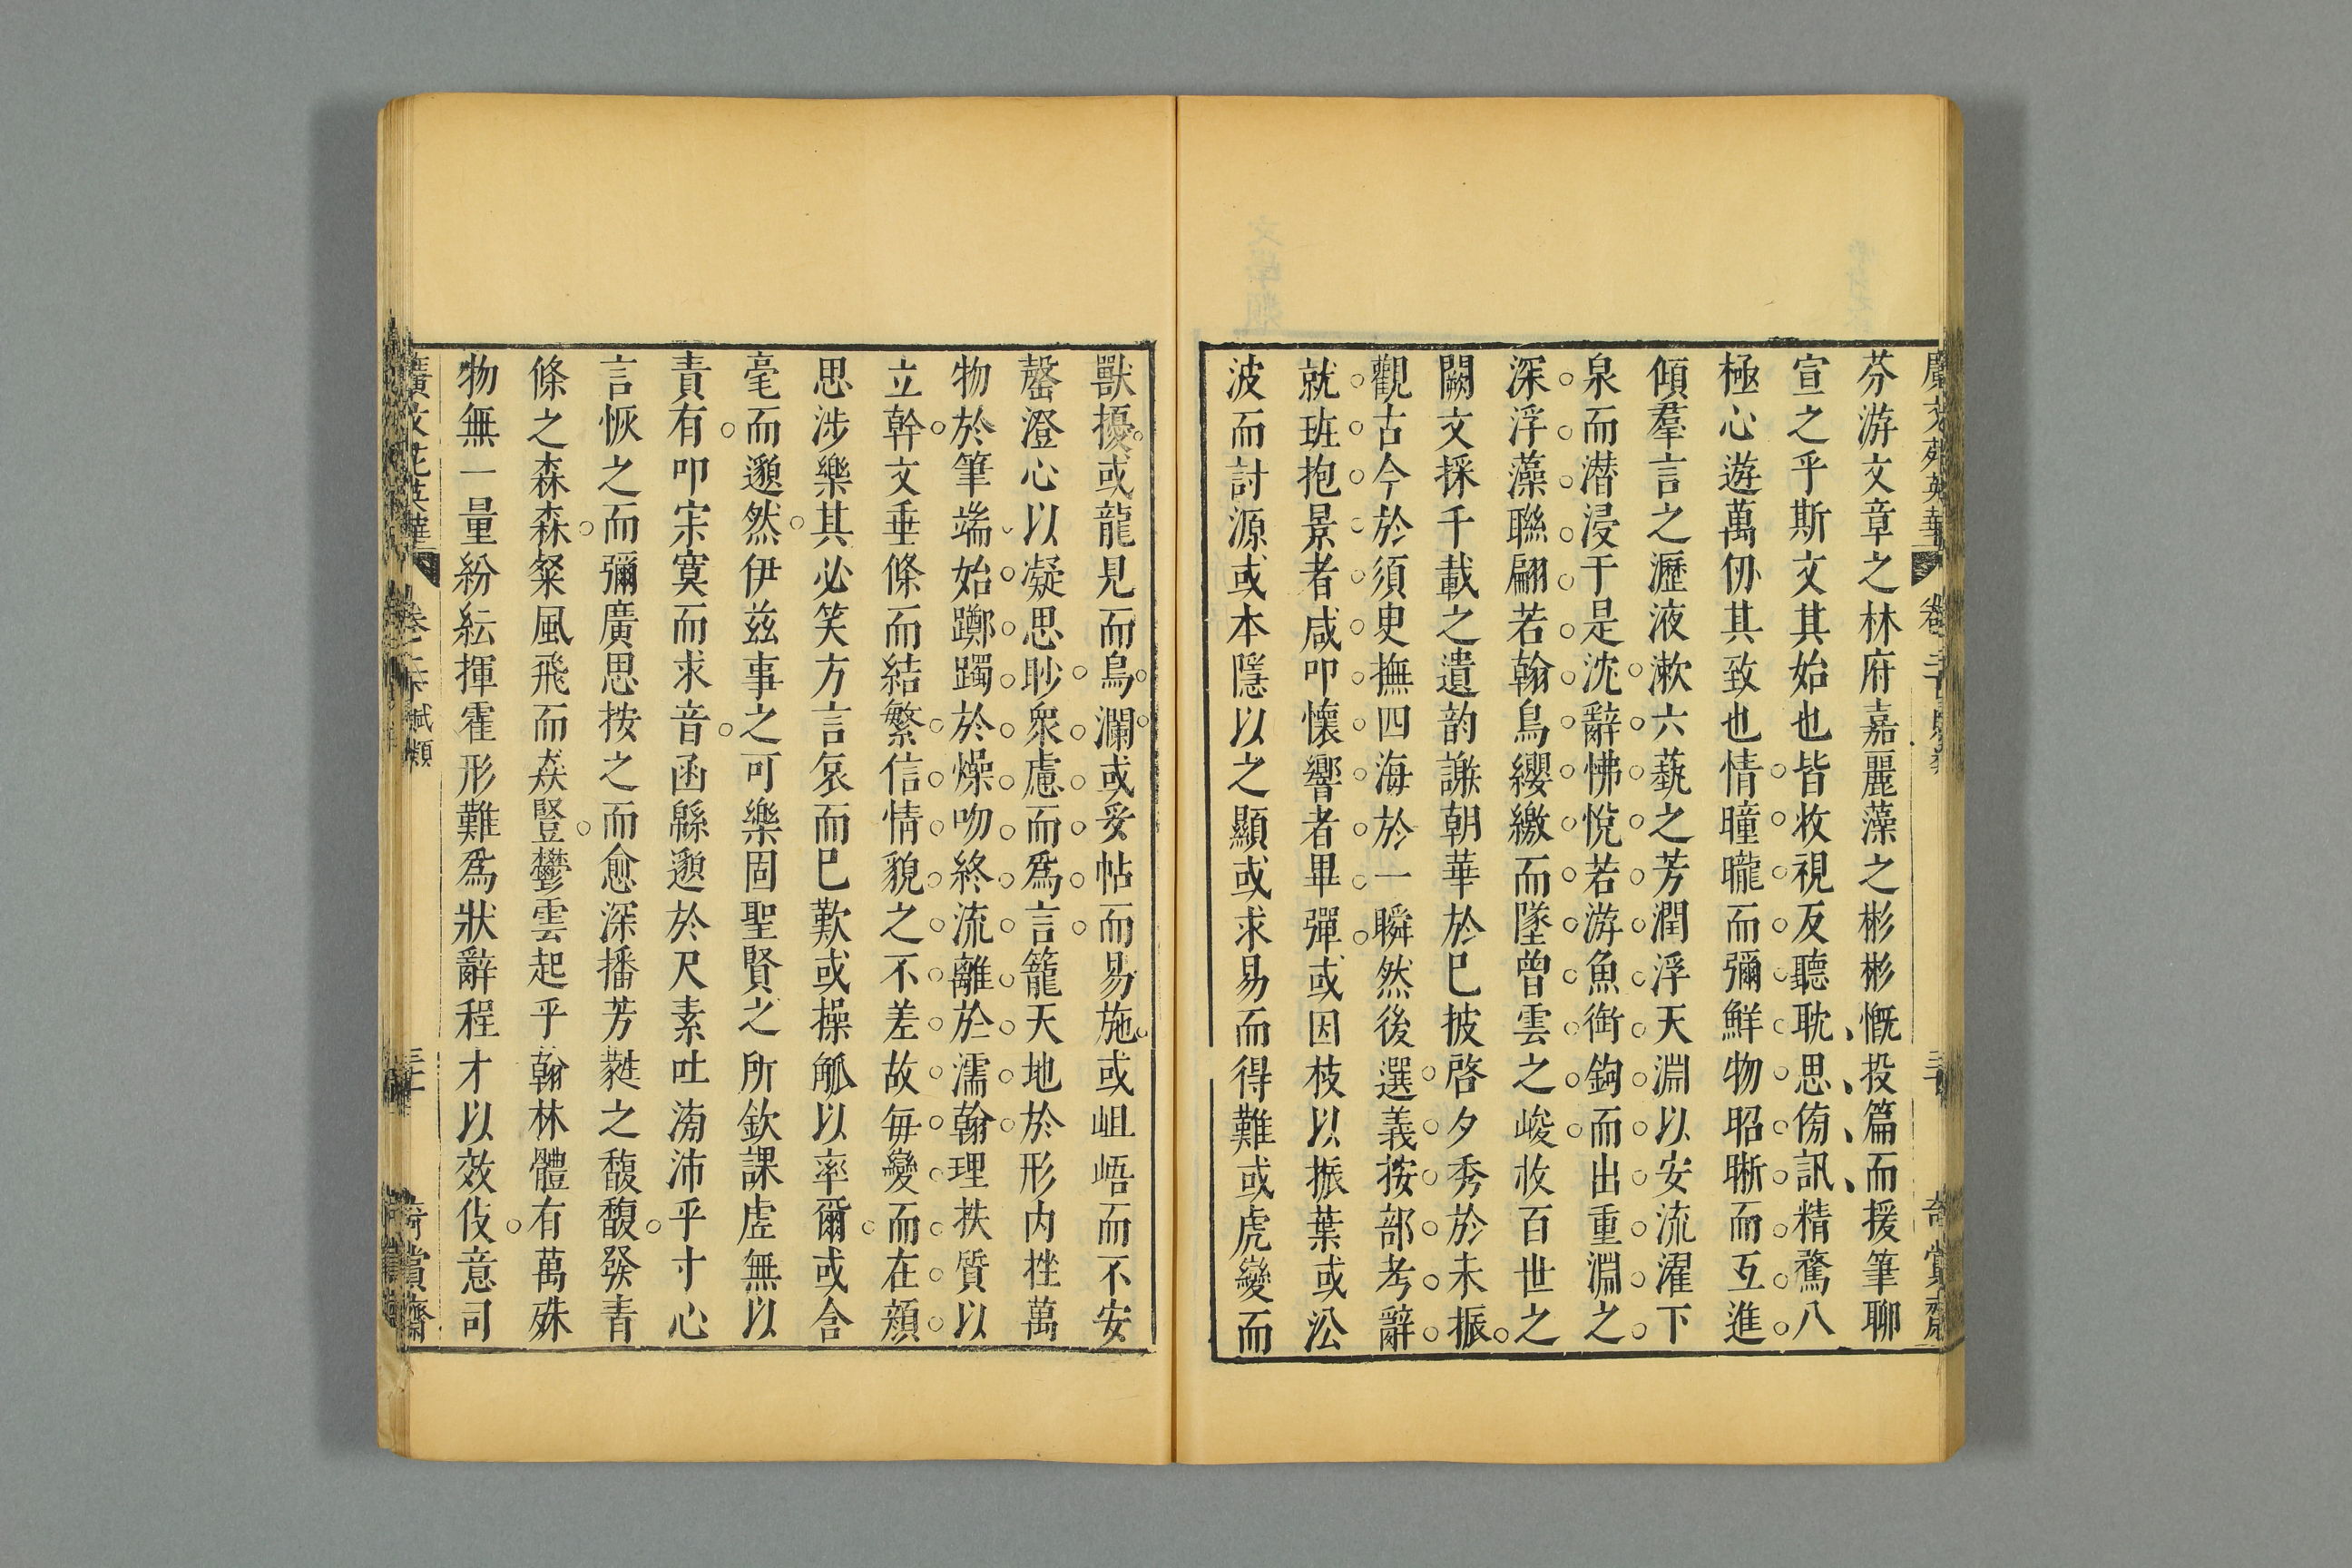 芬游文章之林府嘉麗藻之彬彬慨投篇而援筆聊
宣之乎斯文其始也皆收視反聽耽思傍訊精騖八
極心遊萬仞其致也情曈曨而彌鮮物昭晰而互進
傾羣言之瀝液漱六藝之芳潤浮天淵以安流濯下
泉而潛浸于是沈辭怫悅若游魚銜鉤而出重淵之
深浮藻聯翩若翰鳥纓繳而墜曾雲之峻收百世之
闕文採千載之遺韵謝朝華於巳披啓夕秀於未振
觀古今於須臾撫四海於一瞬然後選義按部考辭
就班抱景者咸叩懷響者畢彈或因枝以振葉或沿
波而討源或本隱以之顯或求易而得難或虎變而
獸擾或龍見而鳥瀾或妥帖而易施或岨峿而不安
罄澄心以凝思眇衆慮而爲言籠天地於形內挫萬
物於筆端始躑躅於燥吻終流離於濡翰理扶質以
立幹文垂條而結繁信情貌之不差故每變而在顏
思涉樂其必笑方言哀而巳歎或操觚以率爾或含
毫而邈然伊玆事之可樂固聖賢之所欽課虛無以
責有叩寂寞而求音函緜邈於尺素吐滂沛乎寸心
言恢之而彌廣思按之而愈深播芳蕤之馥馥發青
條之森森粲風飛而猋豎鬱雲起乎翰林體有萬殊
物無一量紛紜揮霍形難爲狀辭程才以效伎意司
廣文苑英華 卷二十六 賦類 奇賞齋